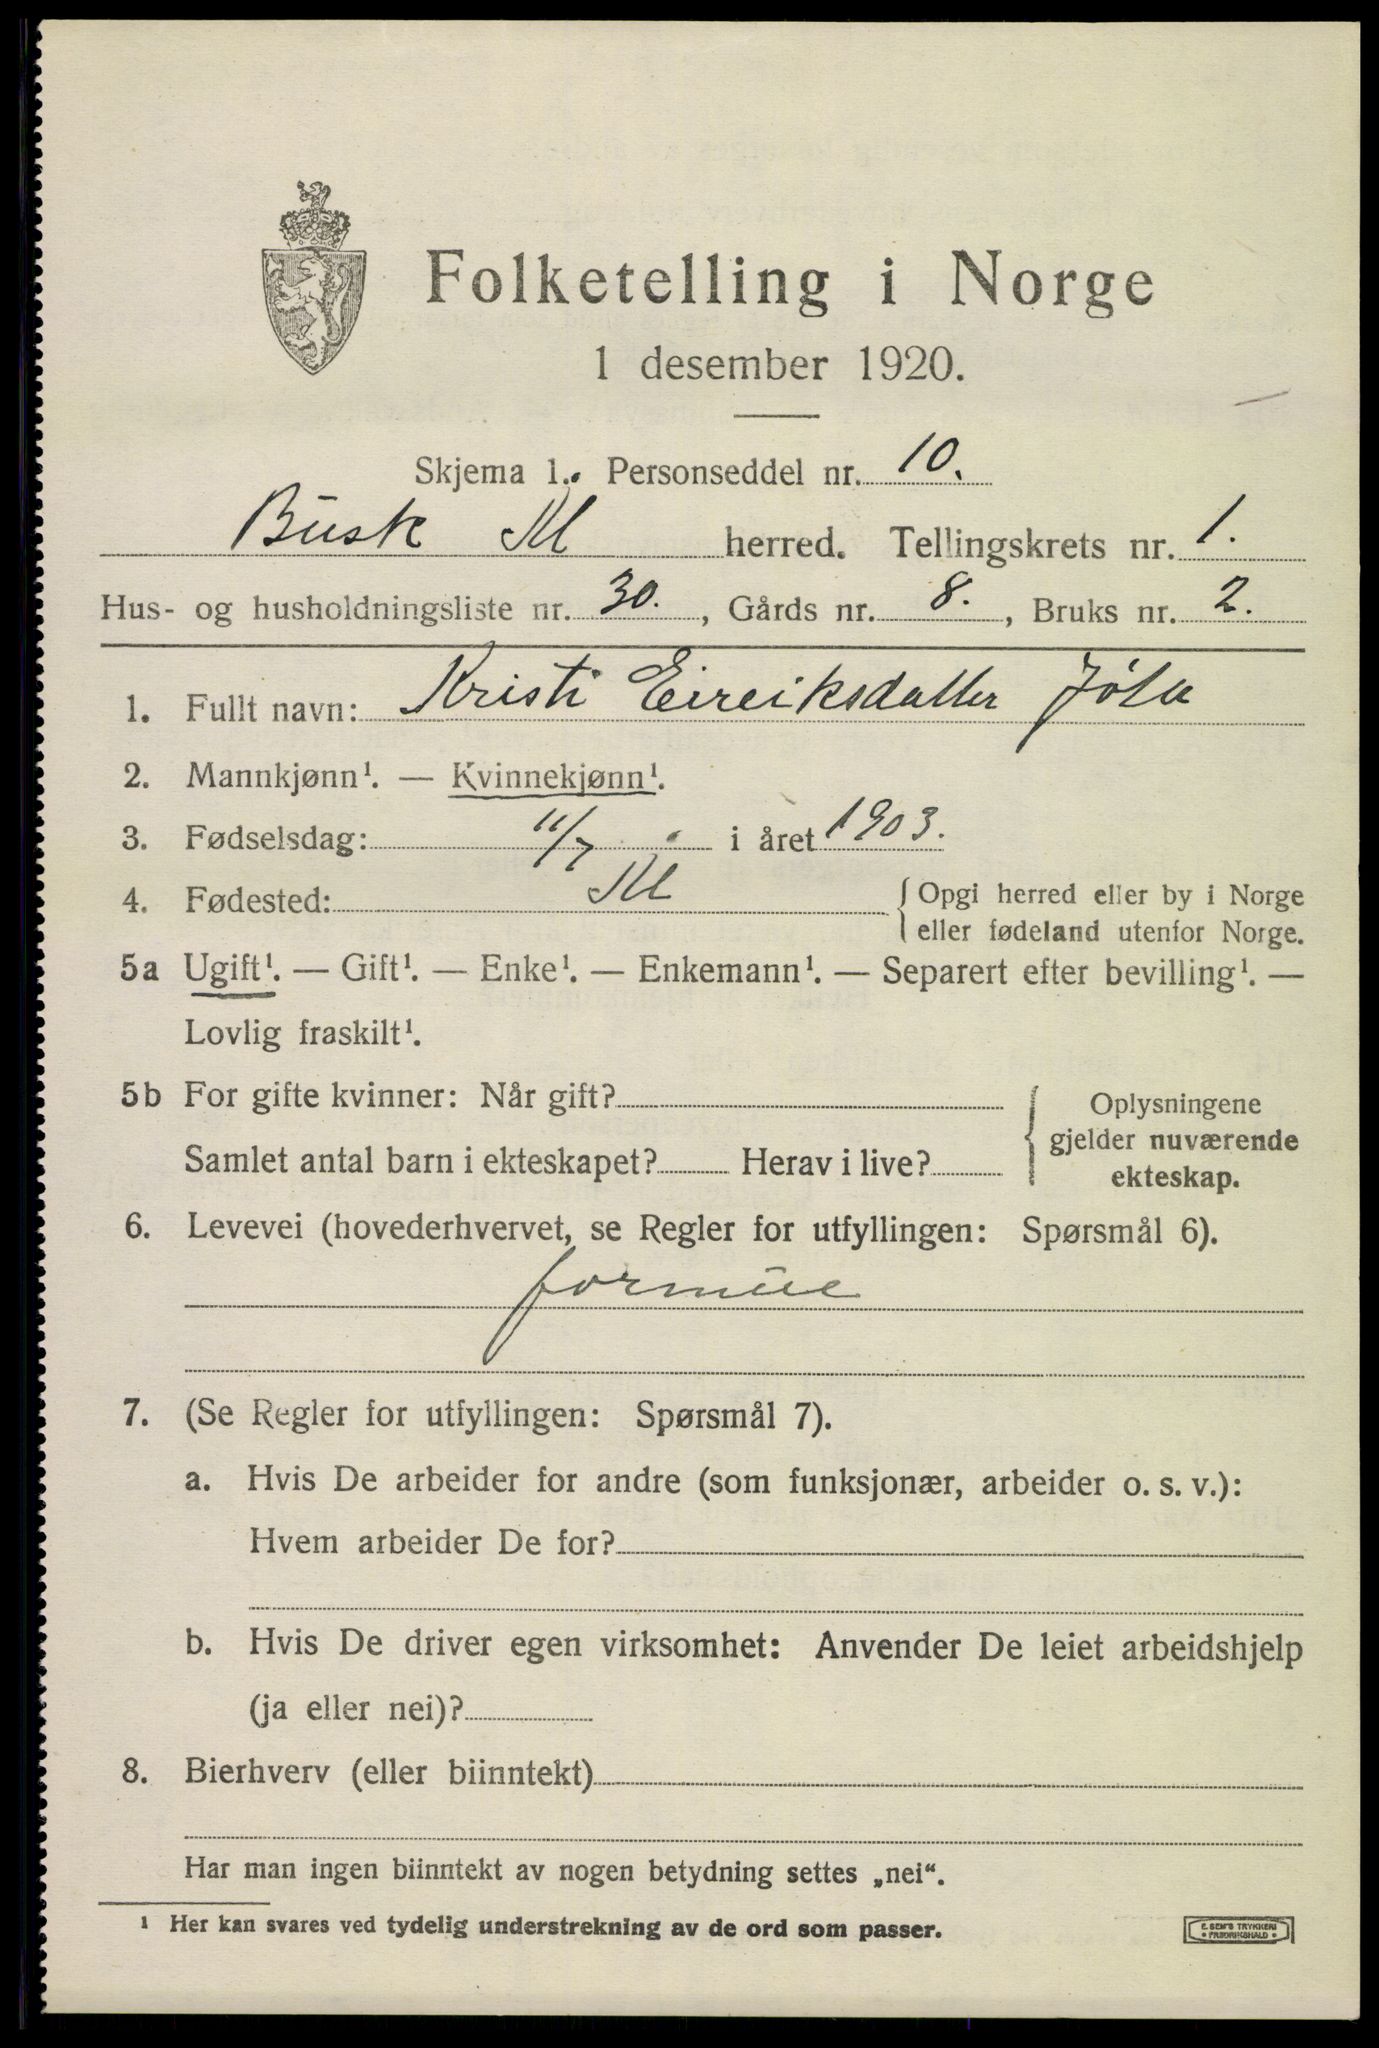 Folketelling i Norge
1 desember 1920.
Skjema 1. Personseddel nr. 10.
Busk Kl herred. Tellingskrets nr. 1.
Hus- og husholdningsliste nr. 30., Gårds nr. 8., Bruks nr. 2.
1. Fullt navn: Kristi Eireiksdatter
2. Mannkjønn¹. — Kvinnekjønn¹.
3. Fødselsdag: 11/7 i året 1903.
4. Fødested: Kl {Opgi herred eller by i Norge
eller fødeland utenfor Norge.
5a Ugift¹. — Gift¹. — Enke¹. — Enkemann¹. — Separert efter bevilling¹. —
Lovlig fraskilt¹.
5b For gifte kvinner: Når gift?
Samlet antal barn i ekteskapet? Herav i live?
{Oplysningene
gjelder nuværende
ekteskap.
6. Levevei (hovederhvervet, se Regler for utfyllingen: Spørsmål 6).
formue
7. (Se Regler for utfyllingen: Spørsmål 7).
a. Hvis De arbeider for andre (som funksjonær, arbeider o. s. v.):
Hvem arbeider De for?
b. Hvis De driver egen virksomhet: Anvender De leiet arbeidshjelp
(ja eller nei)?
8. Bierhverv (eller biinntekt)
Har man ingen biinntekt av nogen betydning settes „nei“.
¹ Her kan svares ved tydelig understrekning av de ord som passer.
E. SEM'S TRYKKERI
• FREDRIKSHALD •